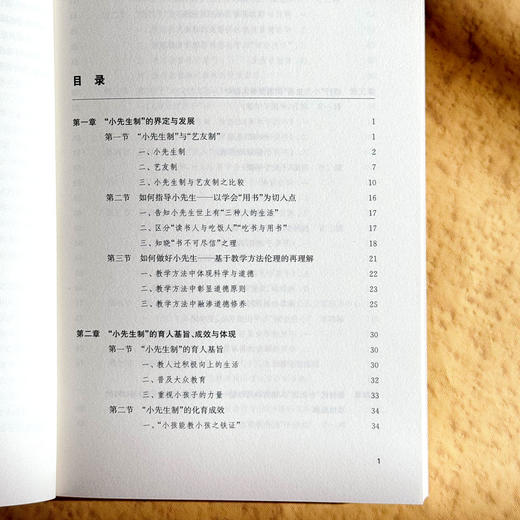 目 录
第一章 “小先生制”的界定与发展 1
第一节 “小先生制”与“艺友制” 1
一、小先生制 2
二、艺友制 7
三、小先生制与艺友制之比较 10
第二节 如何指导小先生——以学会“用书”为切入点 16
一、告知小先生世上有“三种人的生活” 16
二、区分“读书人与吃饭人”“吃书与用书” 17
三、知晓“书不可尽信”之理 18
第三节 如何做好小先生——基于教学方法伦理的再理解 21
一、教学方法中体现科学与道德 21
二、教学方法中彰显道德原则 23
三、教学方法中融渗道德修养 25
第二章 “小先生制”的育人基旨、成效与体现 30
第一节 “小先生制”的育人基旨 30
一、教人过积极向上的生活 30
二、普及大众教育 32
三、重视小孩子的力量 33
第二节 “小先生制”的化育成效 34
一、“小孩能教小孩之铁证” 34
1